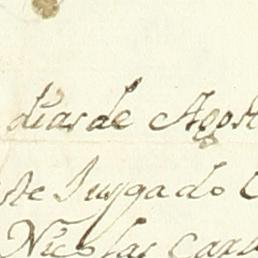 dias de Agost
ste Juzgado C
Nicolas Carl